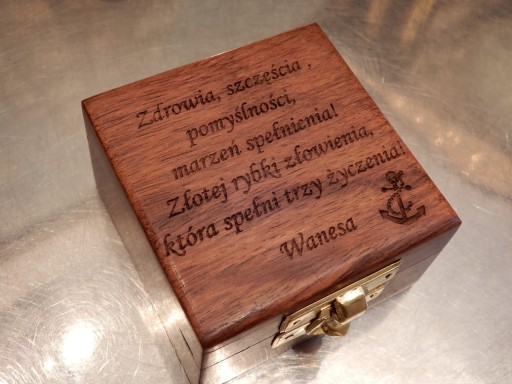 Zdrowia, szczęścia ,
pomyślności,
marzeń spełnienia!
Złotej rybki złowienia,
która spełni trzy życzenia!
Wanesa